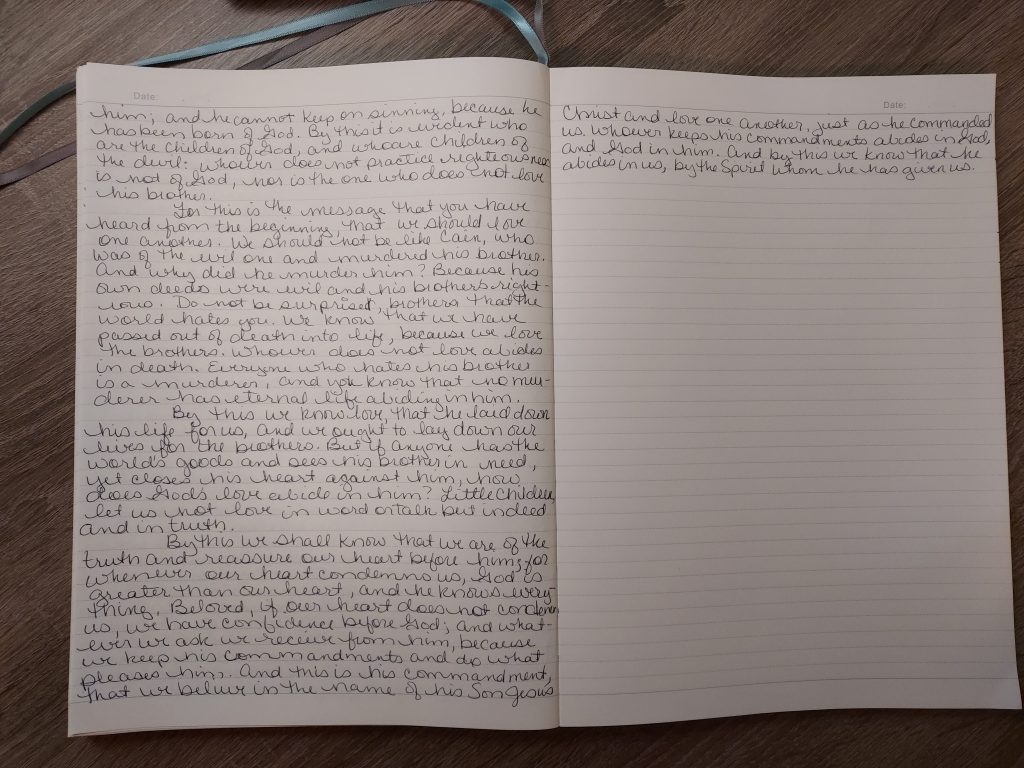 Date:
him; and he cannot keep on sinning, because he
has been born of God. By this it is evident who
are the children of God, and who are children of
the devil: whoever does not practice righteousness
is not of God, nor is the one who does not love
his brother.
For this is the message that you have
heard from the beginning, that we should love
one another. We should not be like Cain, who
was of the evil one and murdered his brother.
And why did he murder him? Because his
own deeds were evil and his brothers right-
eous. Do not be surprised, brothers that the
world hates you. We know that we have
passed out of death into life, because we love
the brothers. Whoever does not love abides
in death. Everyone who hates his brother
is a murderer, and you know that no mur-
derer has eternal life abiding in him.
By this we know love, that he laid down
his life for us, and we ought to lay down our
lives for the brothers. But if anyone has the
world's goods and sees his brother in need,
yet closes his heart against him, how
does God's love abide in him? Little children
let us not love in word or talk but in deed
and in truth.
By this we shall know that we are of the
truth and reassure our heart before him; for
whenever our heart condemns us, God is
greater than our heart, and he knows every
thing. Beloved, if our heart does not condemn
us, we have confidence before God; and what-
ever we ask we receive from him, because
we keep his commandments and do what
pleases him. And this is his commandment,
that we believe in the name of his Son Jesus
Date:
Christ and love one another, just as he commanded
us. Whoever keeps his commandments abides in God,
and God in him. And by this we know that he
abides in us, by the Spirit whom he has given us.